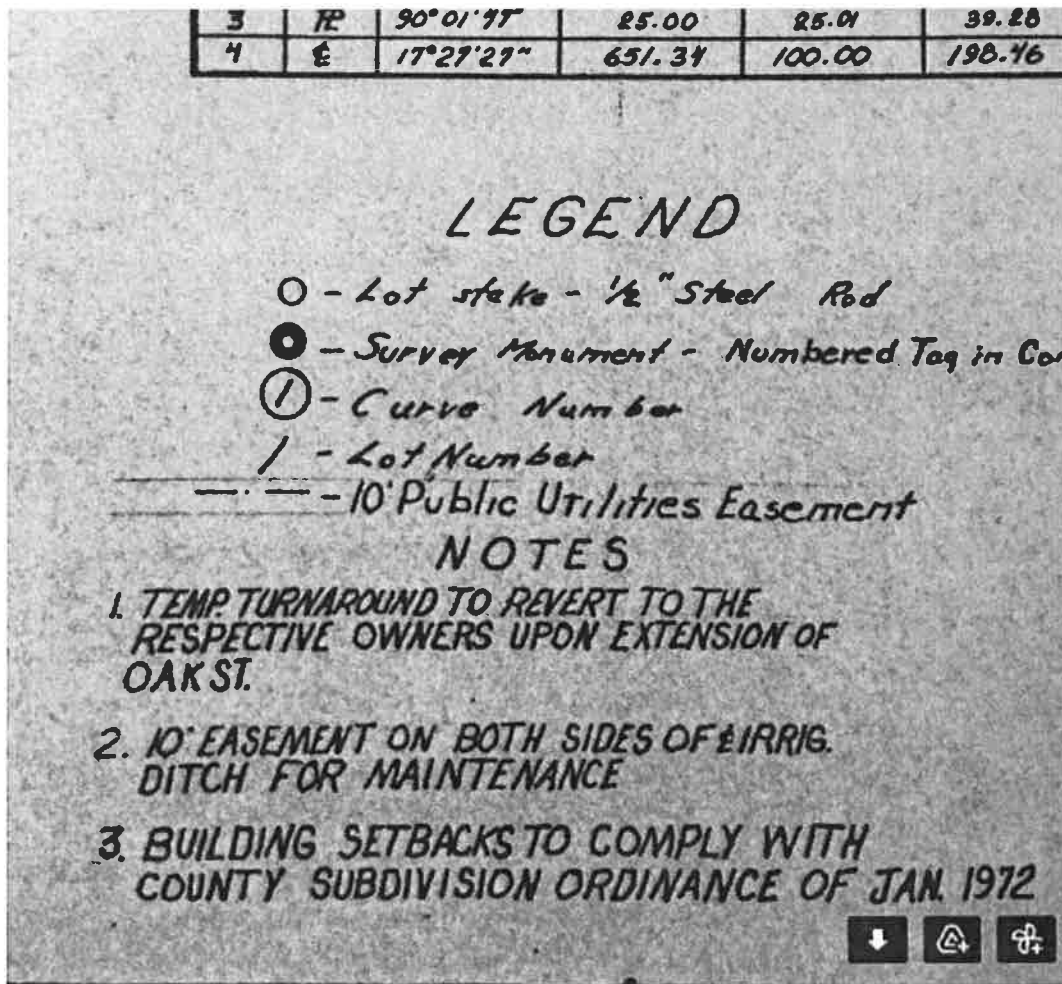 3 ⅊ 90°01'47" 25.00 25.01 39.28
4 ℄ 17°27'27" 651.34 100.00 198.46
LEGEND
- Lot stake - 1/2" Steel Rod
- Survey Monument - Numbered Tag in Con
1 - Curve Number
1 - Lot Number
- 10' Public Utilities Easement
NOTES
1. TEMP. TURNAROUND TO REVERT TO THE
RESPECTIVE OWNERS UPON EXTENSION OF
OAK ST.
2. 10' EASEMENT ON BOTH SIDES OF ℄ IRRIG.
DITCH FOR MAINTENANCE
3. BUILDING SETBACKS TO COMPLY WITH
COUNTY SUBDIVISION ORDINANCE OF JAN. 1972